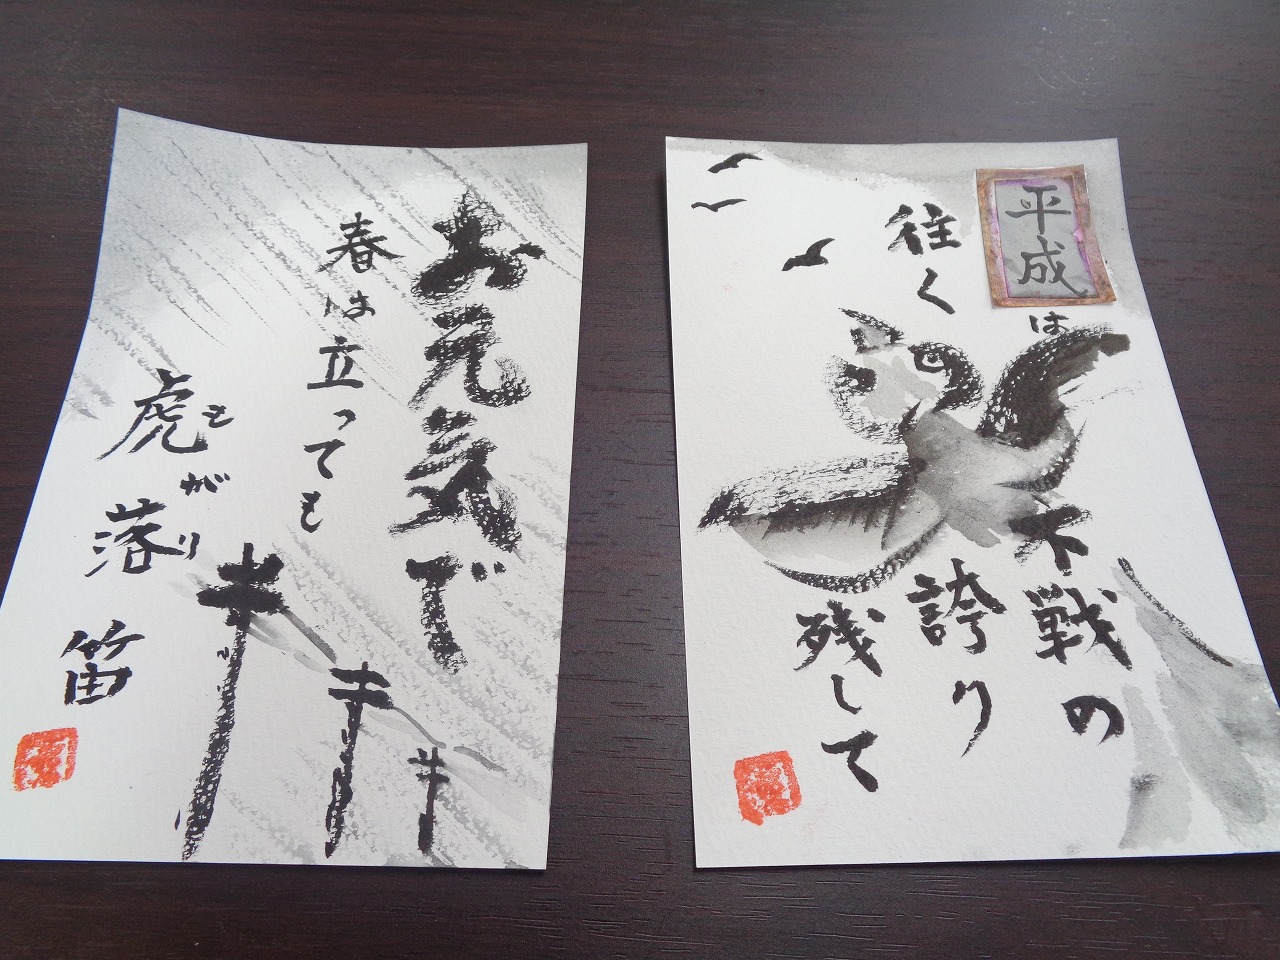 お元気で
春は立っても
虎落笛
もがり
平成は
不戦の
往く
誇り
残して